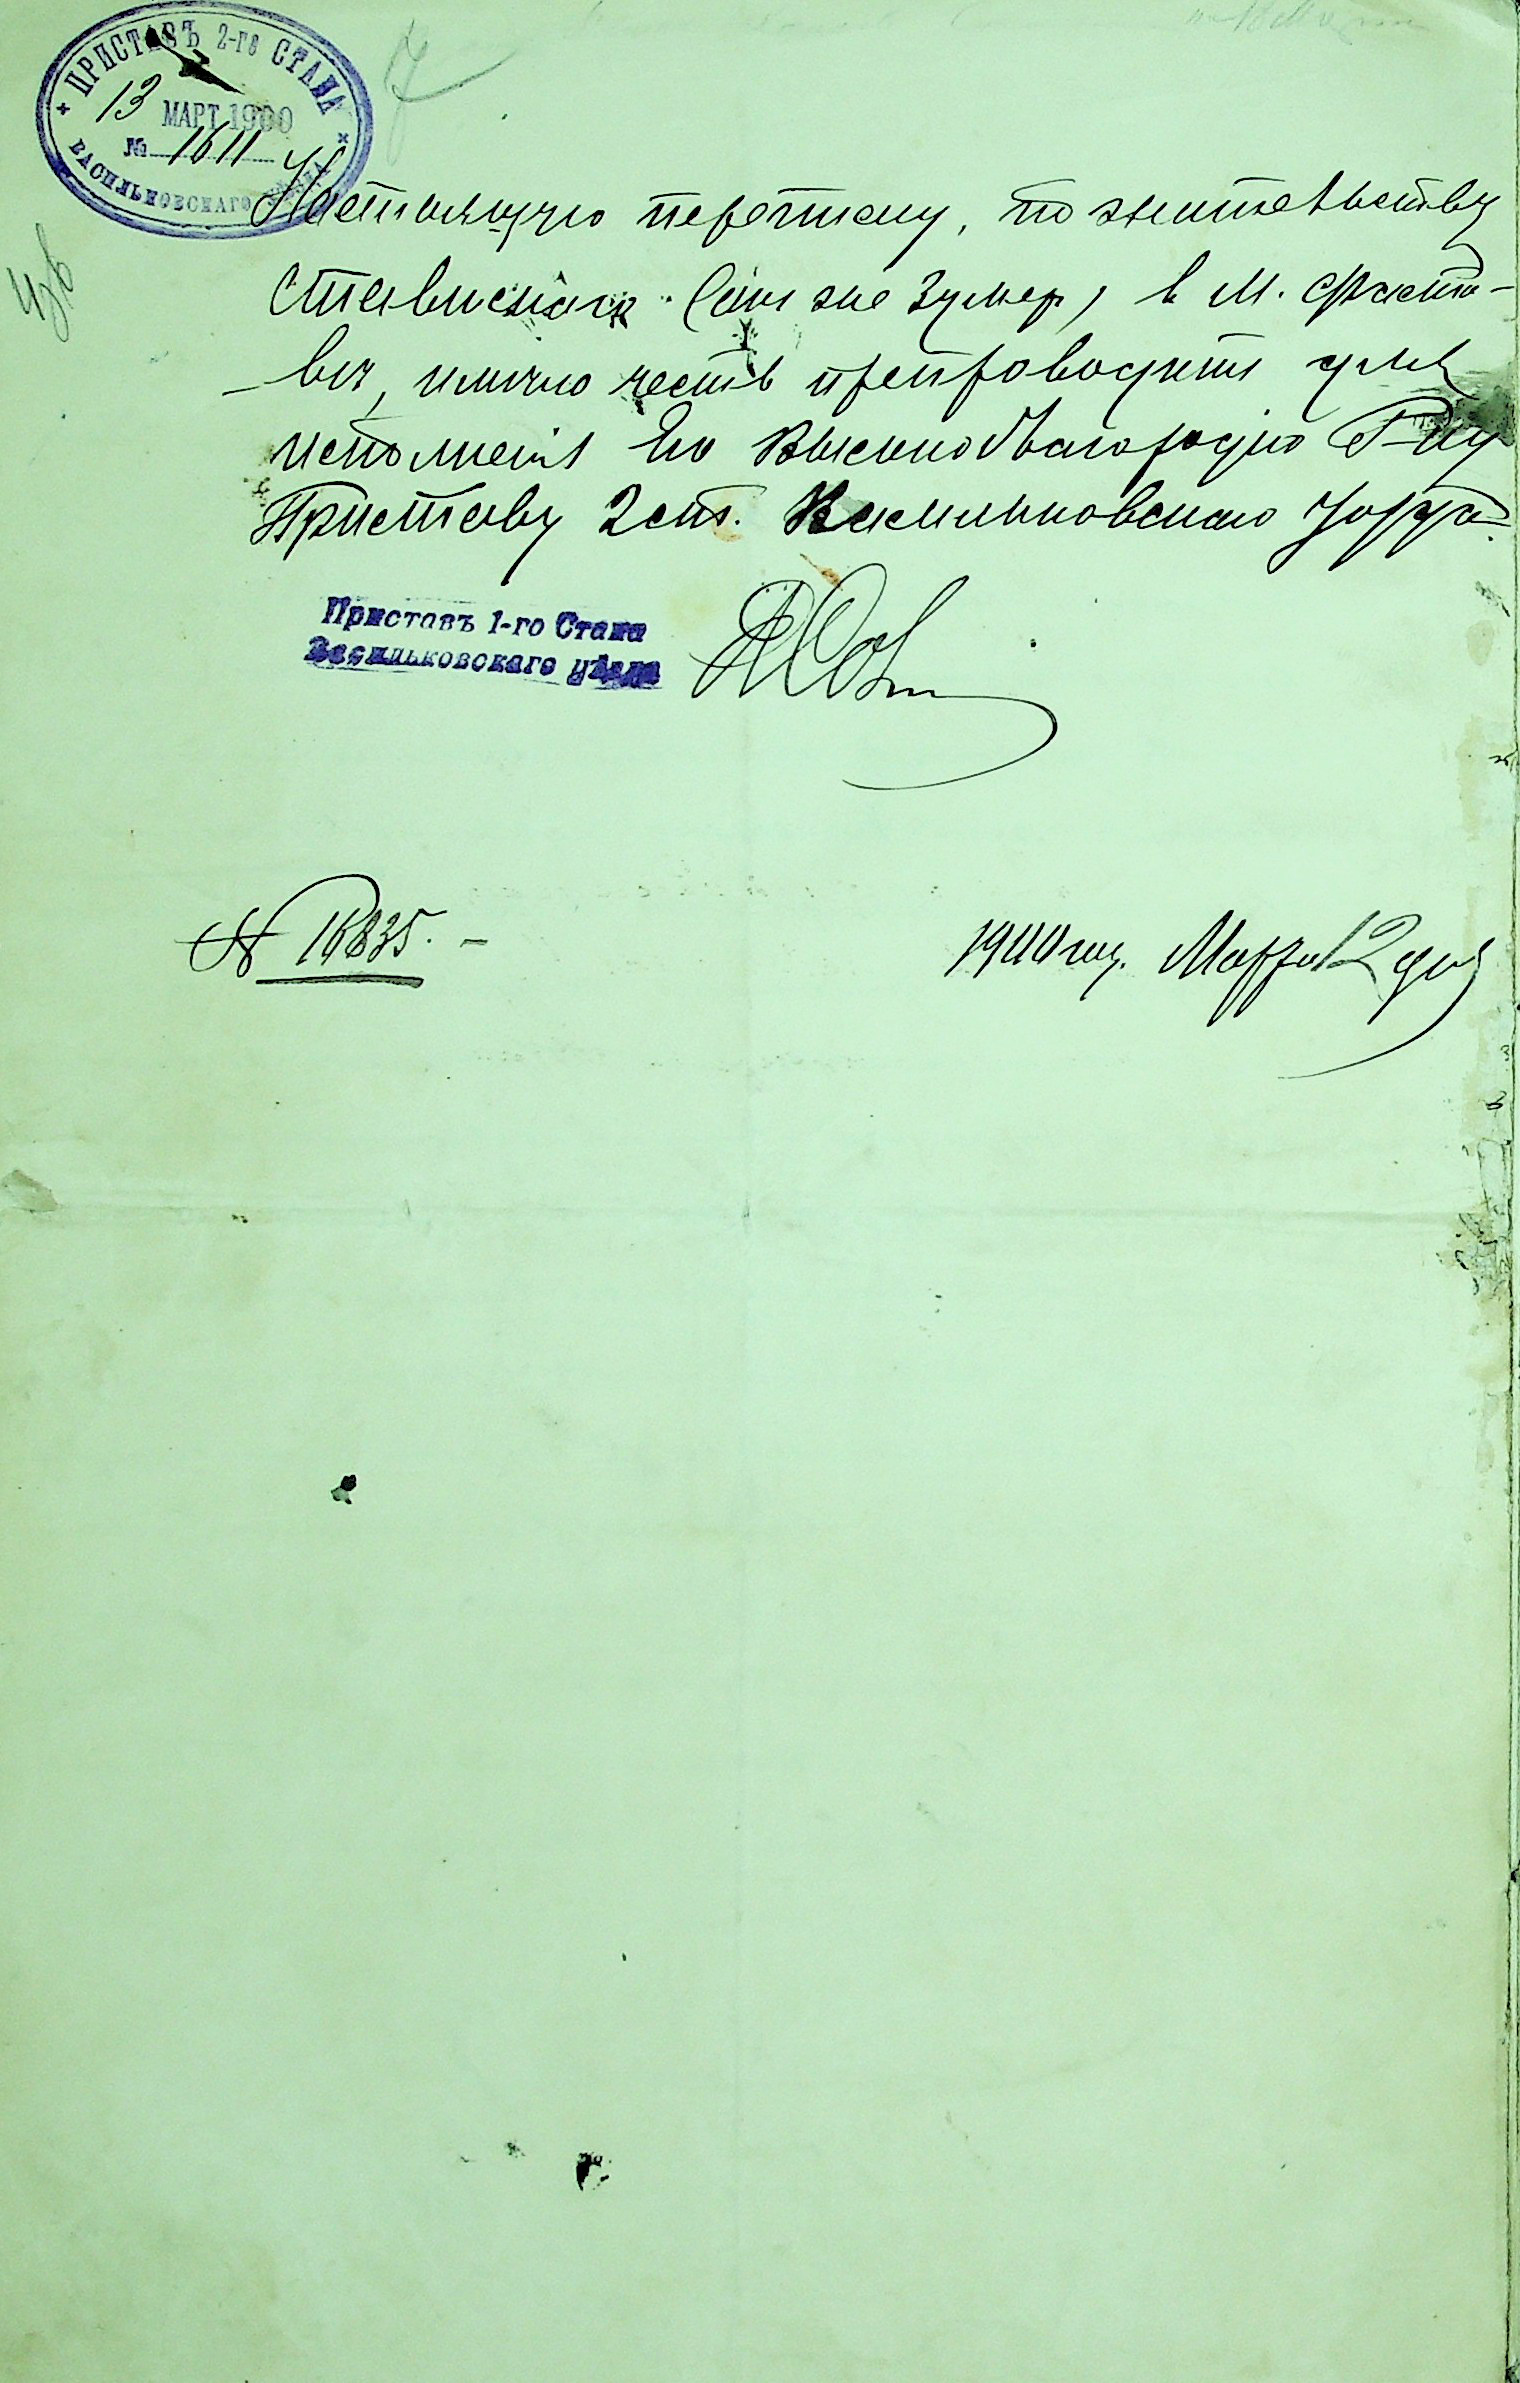 ПРИСТАВЪ 2-ГО СТАНА
13 МАРТ 1900
№ 1611
ВАСИЛЬКОВСКАГО УѢЗДА
7
Настоящую переписку, по жительству
Ставискаго (он же Зумер) в м. Фасто-
-ве, имею честь препроводить для
исполнения Его Высокоблагородию Г-ну
Приставу 2 ст. Васильковскаго уезда.
Приставъ 1-го Стана
Васильковскаго уѣзда
№ 16835. -
1900 год. Марта 12 дня